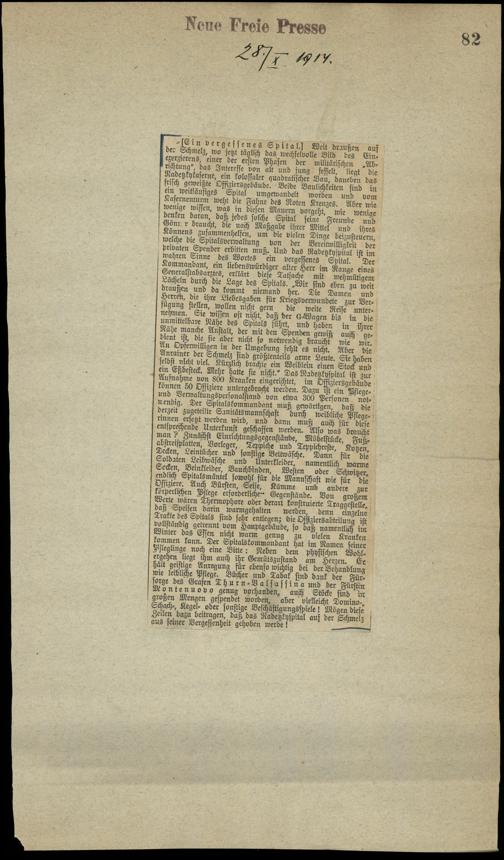 Neue Freie Presse
82
28./X 1914.
[Ein vergessenes Spital.] Weit draußen auf
der Schmelz, wo jetzt täglich das wechselvolle Bild des Ein-
exerzierens, einer der ersten Phasen der militärischen „Ab-
richtung“, das Interesse von alt und jung fesselt, liegt die
Radetzkykaserne, ein kolossaler quadratischer Bau, daneben das
frisch geweißte Offiziersgebäude. Beide Baulichkeiten sind in
ein weitläufiges Spital umgewandelt worden und vom
Kasernenturm weht die Fahne des Roten Kreuzes. Aber wie
wenige wissen, was in diesen Mauern vorgeht, wie wenige
denken daran, daß jedes solche Spital seine Freunde und
Gönner braucht, die nach Maßgabe ihrer Mittel und ihres
Könnens zusammenhelfen, um die vielen Dinge beizusteuern,
welche die Spitalsverwaltung von der Bereitwilligkeit der
privaten Spender erbitten muß. Und das Radetzkyspital ist im
wahren Sinne des Wortes ein vergessenes Spital. Der
Kommandant, ein liebenswürdiger alter Herr im Range eines
Generalstabsarztes, erklärt diese Tatsache mit wehmütigem
Lächeln durch die Lage des Spitals. „Wir sind eben zu weit
draußen und da kommt niemand her. Die Damen und
Herren, die ihre Liebesgaben für Kriegsverwundete zur Ver-
fügung stellen, wollen nicht gern die weite Reise unter-
nehmen. Sie wissen oft nicht, daß der G-Wagen bis in die
unmittelbare Nähe des Spitals führt, und haben in ihrer
Nähe manche Anstalt, der mit den Spenden gewiß auch ge-
dient ist, die sie aber nicht so notwendig braucht wie wir.
An Opferwilligen in der Umgebung fehlt es nicht. Aber die
Anrainer der Schmelz sind größtenteils arme Leute. Sie haben
selbst nicht viel. Kürzlich brachte ein Weiblein einen Stock und
ein Eßbesteck. Mehr hatte sie nicht.“ Das Radetzkyspital ist zur
Aufnahme von 800 Kranken eingerichtet, im Offiziersgebäude
können 50 Offiziere untergebracht werden. Dazu ist ein Pflege-
und Verwaltungspersonalstand von etwa 300 Personen not-
wendig. Der Spitalskommandant muß gewärtigen, daß die
derzeit zugeteilte Sanitätsmannschaft durch weibliche Pflege-
rinnen ersetzt werden wird, und dann muß auch für diese
entsprechende Unterkunft geschaffen werden. Also was braucht
man? Zunächst Einrichtungsgegenstände, Möbelstücke, Fuß-
abstreifplatten, Vorleger, Teppiche und Teppichreste, Kotzen,
Decken, Leintücher und sonstige Bettwäsche. Dann für die
Soldaten Leibwäsche und Unterkleider, namentlich warme
Socken, Beinkleider, Bauchbinden, Westen oder Schwitzer,
endlich Spitalsmäntel sowohl für die Mannschaft wie für die
Offiziere. Auch Bürsten, Seife, Kämme und andere zur
körperlichen Pflege erforderliche Gegenstände. Von großem
Werte wären Thermophore oder derart konstruierte Traggestelle,
daß Speisen darin warmgehalten werden, denn einzelne
Trakte des Spitals sind sehr entlegen; die Offiziersabteilung ist
vollständig getrennt vom Hauptgebäude, so daß namentlich im
Winter das Essen nicht warm genug zu vielen Kranken
kommen kann. Der Spitalskommandant hat im Namen seiner
Pfleglinge noch eine Bitte: Neben dem physischen Wohl-
ergehen liegt ihm auch ihr Gemütszustand am Herzen. Er
hält geistige Anregung für ebenso wichtig bei der Behandlung
wie leibliche Pflege. Bücher und Tabak sind dank der Für-
sorge des Grafen Thurn-Valsassina und der Fürstin
Montenuovo genug vorhanden, auch Stöcke sind in
großen Mengen gespendet worden, aber vielleicht Domino-,
Schach-, Kegel- oder sonstige Beschäftigungsspiele! Mögen diese
Zeilen dazu beitragen, daß das Radetzkyspital auf der Schmelz
aus seiner Vergessenheit gehoben werde!